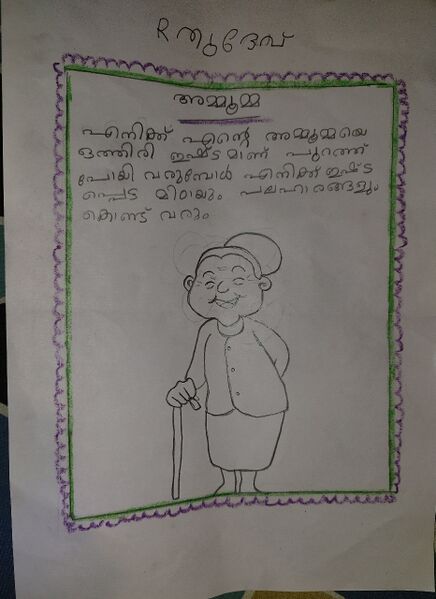 R തുദേവ്
അമ്മൂമ്മ
എനിക്ക് എൻ്റെ അമ്മൂമ്മയെ
ഒത്തിരി ഇഷ്ടമാണ് പുറത്ത്
പോയി വരുമ്പോൾ എനിക്ക് ഇഷ്ട
പ്പെട്ട മിഠായും പലഹാരങ്ങളും
കൊണ്ട് വരും